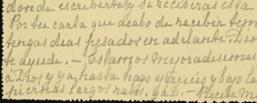 donde escribirte, y si recibiras esta
Por tu carta que acabo de recibir
tengas dias pesados en adelante Dio
te ayude. — Estamos mejoradusmas
a Dios y ya, hasta hago y bajo la
piernas largos ratos. G. a D. — Recibe m